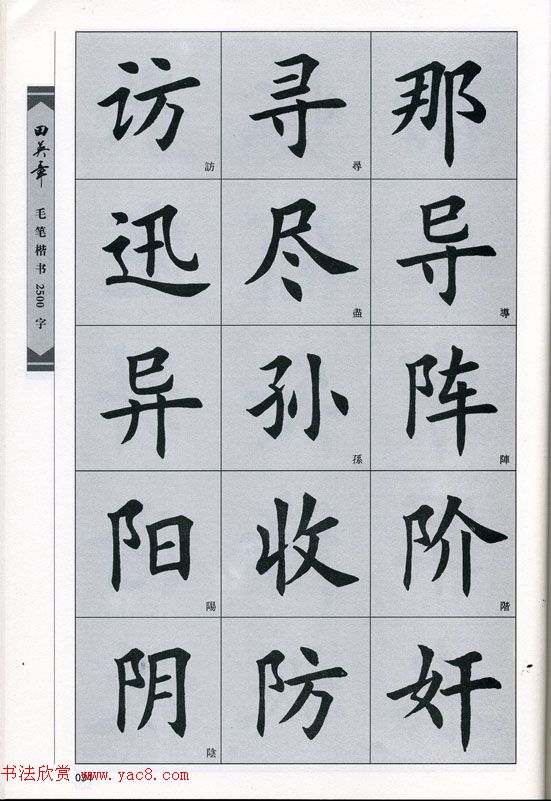 田英章
毛笔楷书2500字
访 訪 寻 尋 那
迅 尽 盡 导 導
异 孙 孫 阵 陣
阳 陽 收 阶 階
阴 陰 防 奸
书法欣赏 www.yac8.com